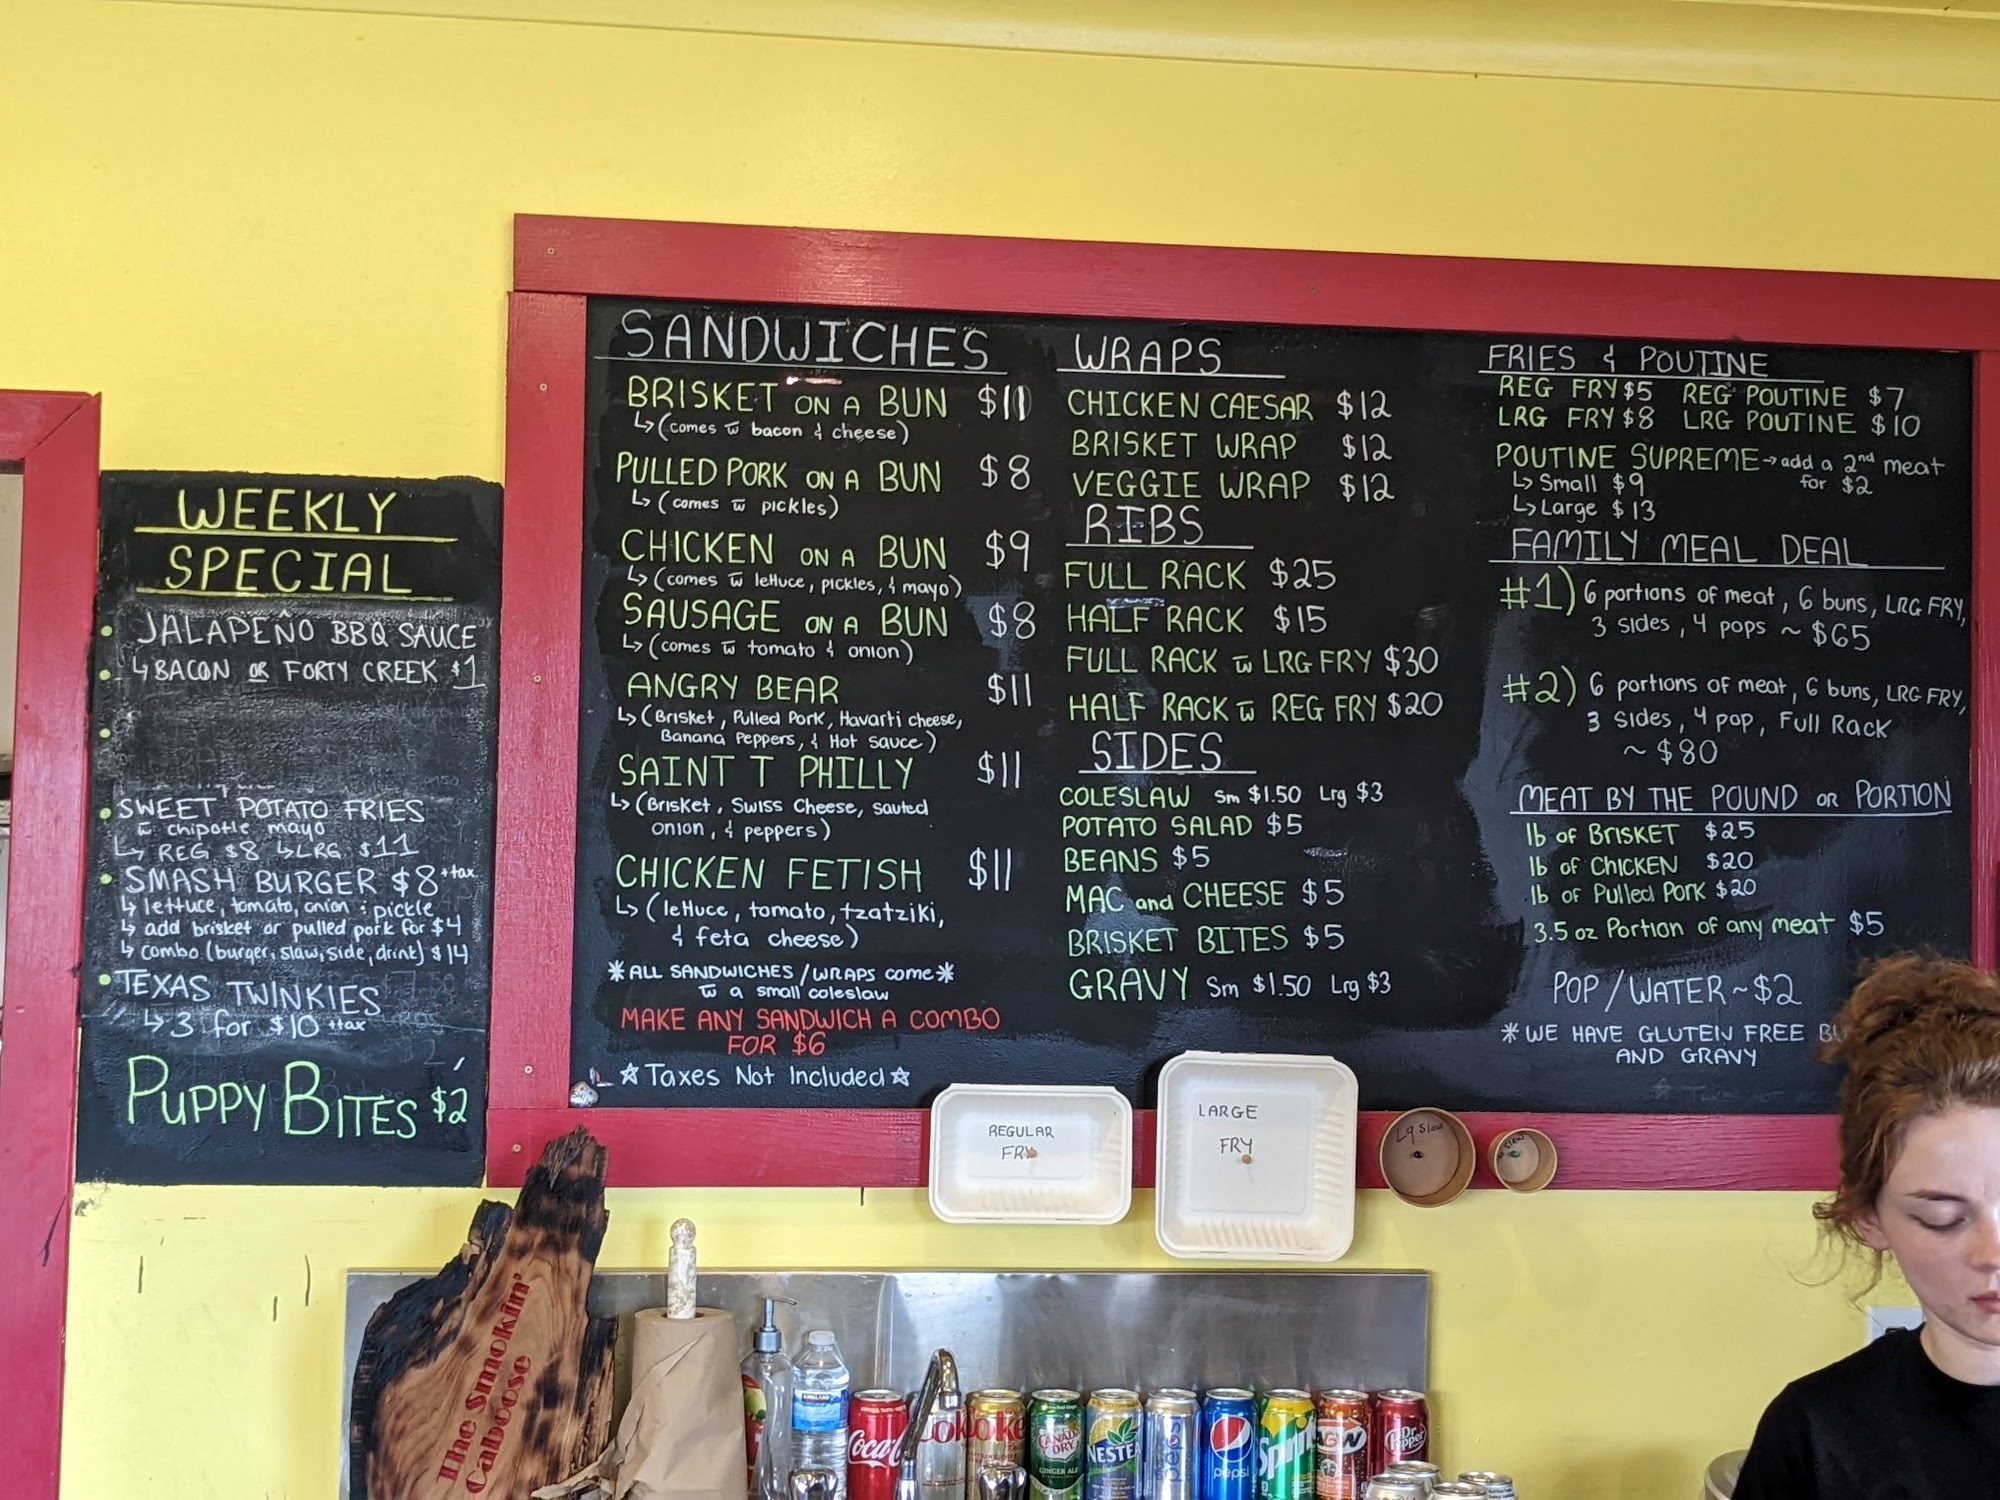 WEEKLY
SPECIAL
JALAPEÑO BBQ SAUCE
↳ BACON OR FORTY CREEK $1
SWEET POTATO FRIES
w chipotle mayo
↳ REG $8 ↳ LRG $11
SMASH BURGER $8 +tax
↳ lettuce, tomato, onion & pickle
↳ add brisket or pulled pork for $4
↳ combo (burger, slaw, side, drink) $14
TEXAS TWINKIES
↳ 3 for $10 +tax
PUPPY BITES $2
SANDWICHES
BRISKET ON A BUN $11
↳ (comes w bacon & cheese)
PULLED PORK ON A BUN $8
↳ (comes w pickles)
CHICKEN ON A BUN $9
↳ (comes w lettuce, pickles, & mayo)
SAUSAGE ON A BUN $8
↳ (comes w tomato & onion)
ANGRY BEAR $11
↳ (Brisket, Pulled Pork, Havarti cheese,
Banana Peppers, & Hot Sauce)
SAINT T PHILLY $11
↳ (Brisket, Swiss Cheese, sauted
onion, & peppers)
CHICKEN FETISH $11
↳ (lettuce, tomato, tzatziki,
& feta cheese)
*ALL SANDWICHES/WRAPS come*
w a small coleslaw
MAKE ANY SANDWICH A COMBO
FOR $6
☆ Taxes Not Included ☆
WRAPS
CHICKEN CAESAR $12
BRISKET WRAP $12
VEGGIE WRAP $12
RIBS
FULL RACK $25
HALF RACK $15
FULL RACK w LRG FRY $30
HALF RACK w REG FRY $20
SIDES
COLESLAW Sm $1.50 Lrg $3
POTATO SALAD $5
BEANS $5
MAC and CHEESE $5
BRISKET BITES $5
GRAVY Sm $1.50 Lrg $3
FRIES & POUTINE
REG FRY $5 REG POUTINE $7
LRG FRY $8 LRG POUTINE $10
POUTINE SUPREME → add a 2nd meat
for $2
↳ Small $9
↳ Large $13
FAMILY MEAL DEAL
#1) 6 portions of meat, 6 buns, LRG FRY,
3 sides, 4 pops ~ $65
#2) 6 portions of meat, 6 buns, LRG FRY,
3 sides, 4 pop, Full Rack
~ $80
MEAT BY THE POUND OR PORTION
lb of BRISKET $25
lb of CHICKEN $20
lb of Pulled Pork $20
3.5 oz Portion of any meat $5
POP/WATER ~ $2
*WE HAVE GLUTEN FREE
AND GRAVY
REGULAR
FRY
LARGE
FRY
Lg Slaw
The Smokin'
Caboose
KIRKLAND
Coca
Coke
CANADA
DRY
GINGER ALE
NESTEA
pepsi
Sprite
A&W
Dr Pepper